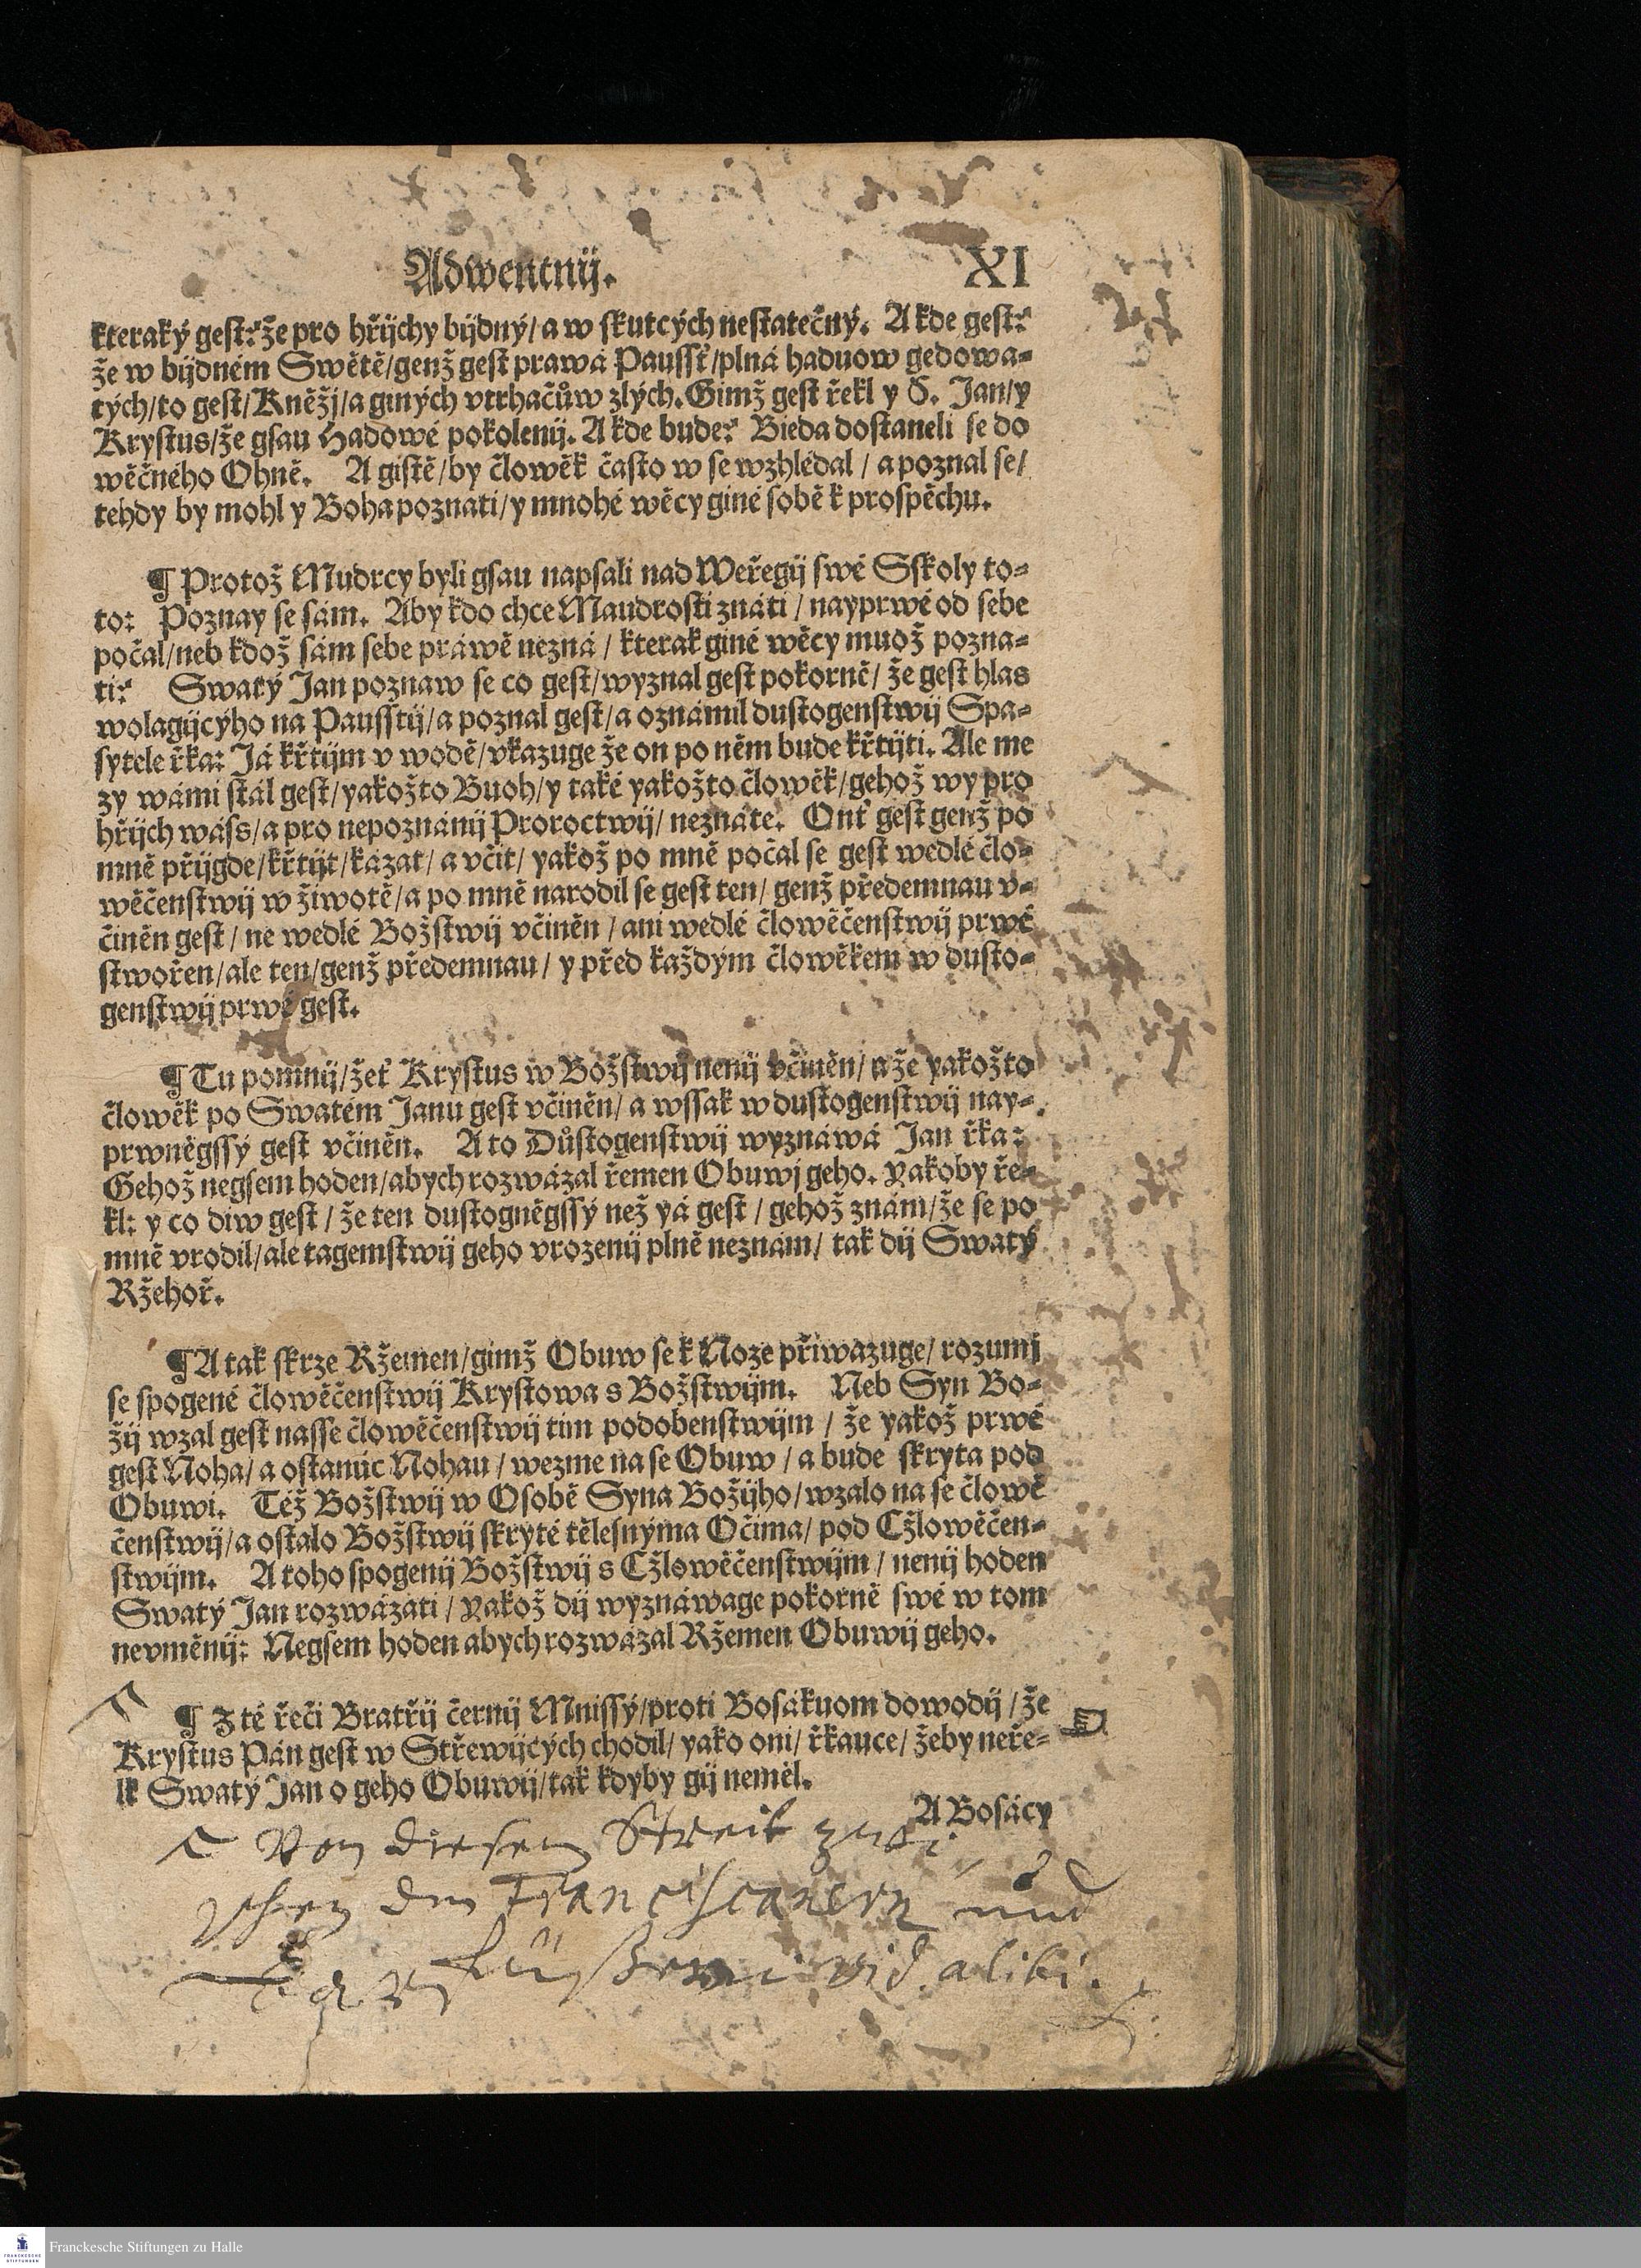 Adwentnij. XI
kteraký gest? že pro hřijchy bijdný/ a w skutcých nestatečný. A kde gest?
že w bijdném Swětě/ genž gest prawá Paussť/ plná haduow gedowa-
tých/ to gest/ Kněžj/ a giných vtrhačůw zlých. Gimž gest řekl y S. Jan/ y
Krystus/ že gsau Hadowé pokolenij. A kde bude? Bieda dostaneli se do
wěčného Ohně. A gistě/ by člowěk často w se wzhlédal / a poznal se/
tehdy by mohl y Boha poznati/ y mnohé wěcy giné sobě k prospěchu.
¶ Protož Mudrcy byli gsau napsali nad Weřegij swé Sskoly to-
to: Poznay se sám. Aby kdo chce Maudrosti znáti / nayprwé od sebe
počal/ neb kdož sám sebe práwě nezná / kterak giné wěcy muož pozna-
ti? Swatý Jan poznaw se co gest/ wyznal gest pokorně/ že gest hlas
wolagijcýho na Pausstij/ a poznal gest/ a oznámil dustogenstwij Spa-
sytele řka: Já křtijm v wodě/ vkazuge že on po něm bude křtijti. Ale me
zy wámi stál gest/ yakožto Buoh/ y také yakožto člowěk/ gehož wy pro
hřijch wáss/ a pro nepoznánij Proroctwij/ neznáte. Onť gest genž po
mně přijgde/ křtijt/ kázat/ a včit/ yakož po mně počal se gest wedlé člo-
wěčenstwij w žiwotě/ a po mně narodil se gest ten/ genž předemnau v-
činěn gest / ne wedlé Božstwij včiněn / ani wedlé člowěčenstwij prwé
stwořen/ ale ten/ genž předemnau/ y před každým člowěkem w dusto-
genstwij prwé gest.
¶ Tu pomnij/ žeť Krystus w Božstwij nenij včiněn/ a že yakožto
člowěk po Swatém Janu gest včiněn/ a wssak w dustogenstwij nay-
prwněgssý gest včiněn. A to Důstogenstwij wyznáwá Jan řka:
Gehož negsem hoden/ abych rozwázal řemen Obuwj geho. Yakoby ře-
kl: y co diw gest / že ten dustogněgssý než yá gest / gehož znám/ že se po
mně vrodil/ ale tagemstwij geho vrozenij plně neznám/ tak dij Swatý
Ržehoř.
¶ A tak skrze Ržemen/ gimž Obuw se k Noze přiwazuge/ rozumj
se spogené člowěčenstwij Krystowa s Božstwijm. Neb Syn Bo-
žij wzal gest nasse člowěčenstwij tim podobenstwijm / že yakož prwé
gest Noha/ a ostanúc Nohau / wezme na se Obuw / a bude skryta pod
Obuwi. Též Božstwij w Osobě Syna Božijho/ wzalo na se člowě
čenstwij/ a ostalo Božstwij skryté tělesnýma Očima/ pod Cžlowěčen-
stwijm. A toho spogenij Božstwij s Cžlowěčenstwijm / nenij hoden
Swatý Jan rozwázati / Yakož dij wyznáwage pokorně swé w tom
nevměnij: Negsem hoden abych rozwázal Ržemen Obuwij geho.
¶ Z té řeči Bratřij černij Mnissý/ proti Bosákuom dowodij / že
Krystus Pán gest w Střewijcých chodil/ yako oni/ řkauce/ žeby neře-
lk Swatý Jan o geho Obuwij/ tak kdyby gij neměl.
A Bosácy
Von diesem Streit zwi
schen den Franciscanern und
vid. alibi.
Franckesche Stiftungen zu Halle
FRANCKESCHE
STIFTUNGEN